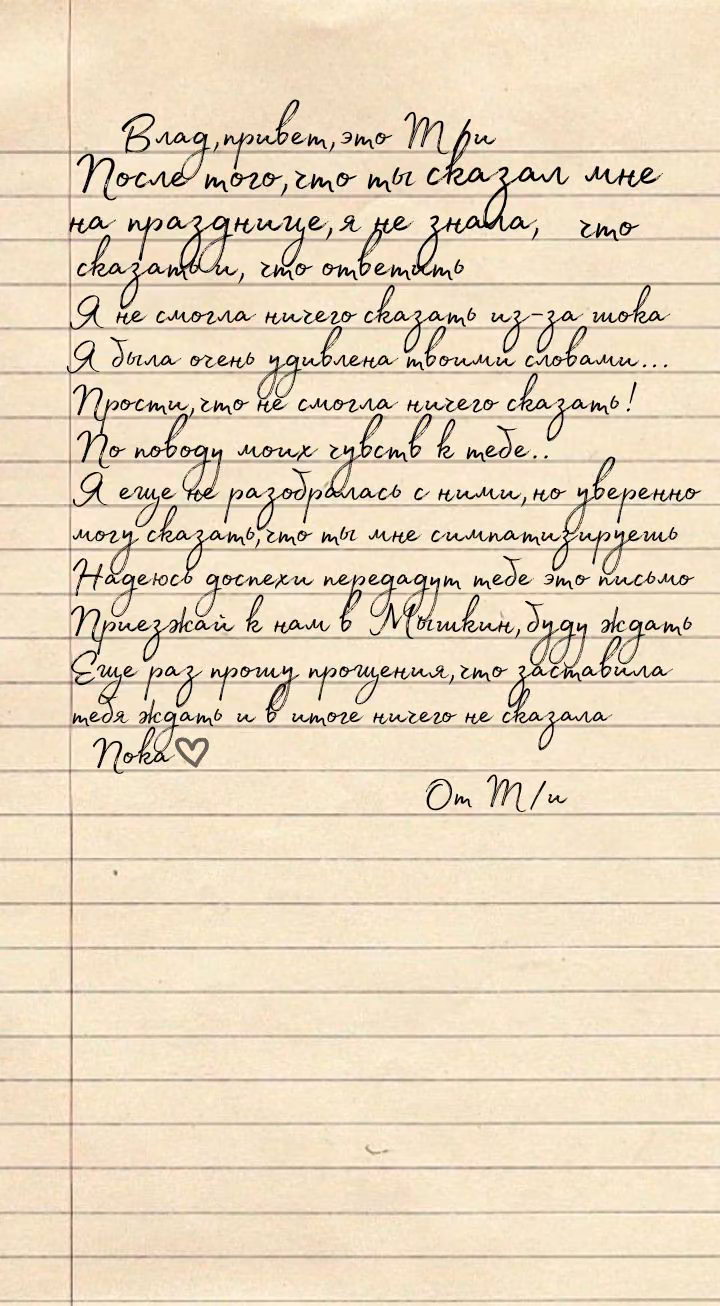 Влад,привет,это Т/и
После того,что ты сказал мне
на празднице,я не знала, что
сказать и, что ответить
Я не смогла ничего сказать из-за шока
Я была очень удивлена твоими словами...
Прости,что не смогла ничего сказать!
По поводу моих чувств к тебе..
Я еще не разобралась с ними,но уверенно
могу сказать,что ты мне симпатизируешь
Надеюсь доспехи передадут тебе это письмо
Приезжай к нам в Мышкин,буду ждать
Еще раз прошу прощения,что заставила
тебя ждать и в итоге ничего не сказала
Пока♡
От Т/и